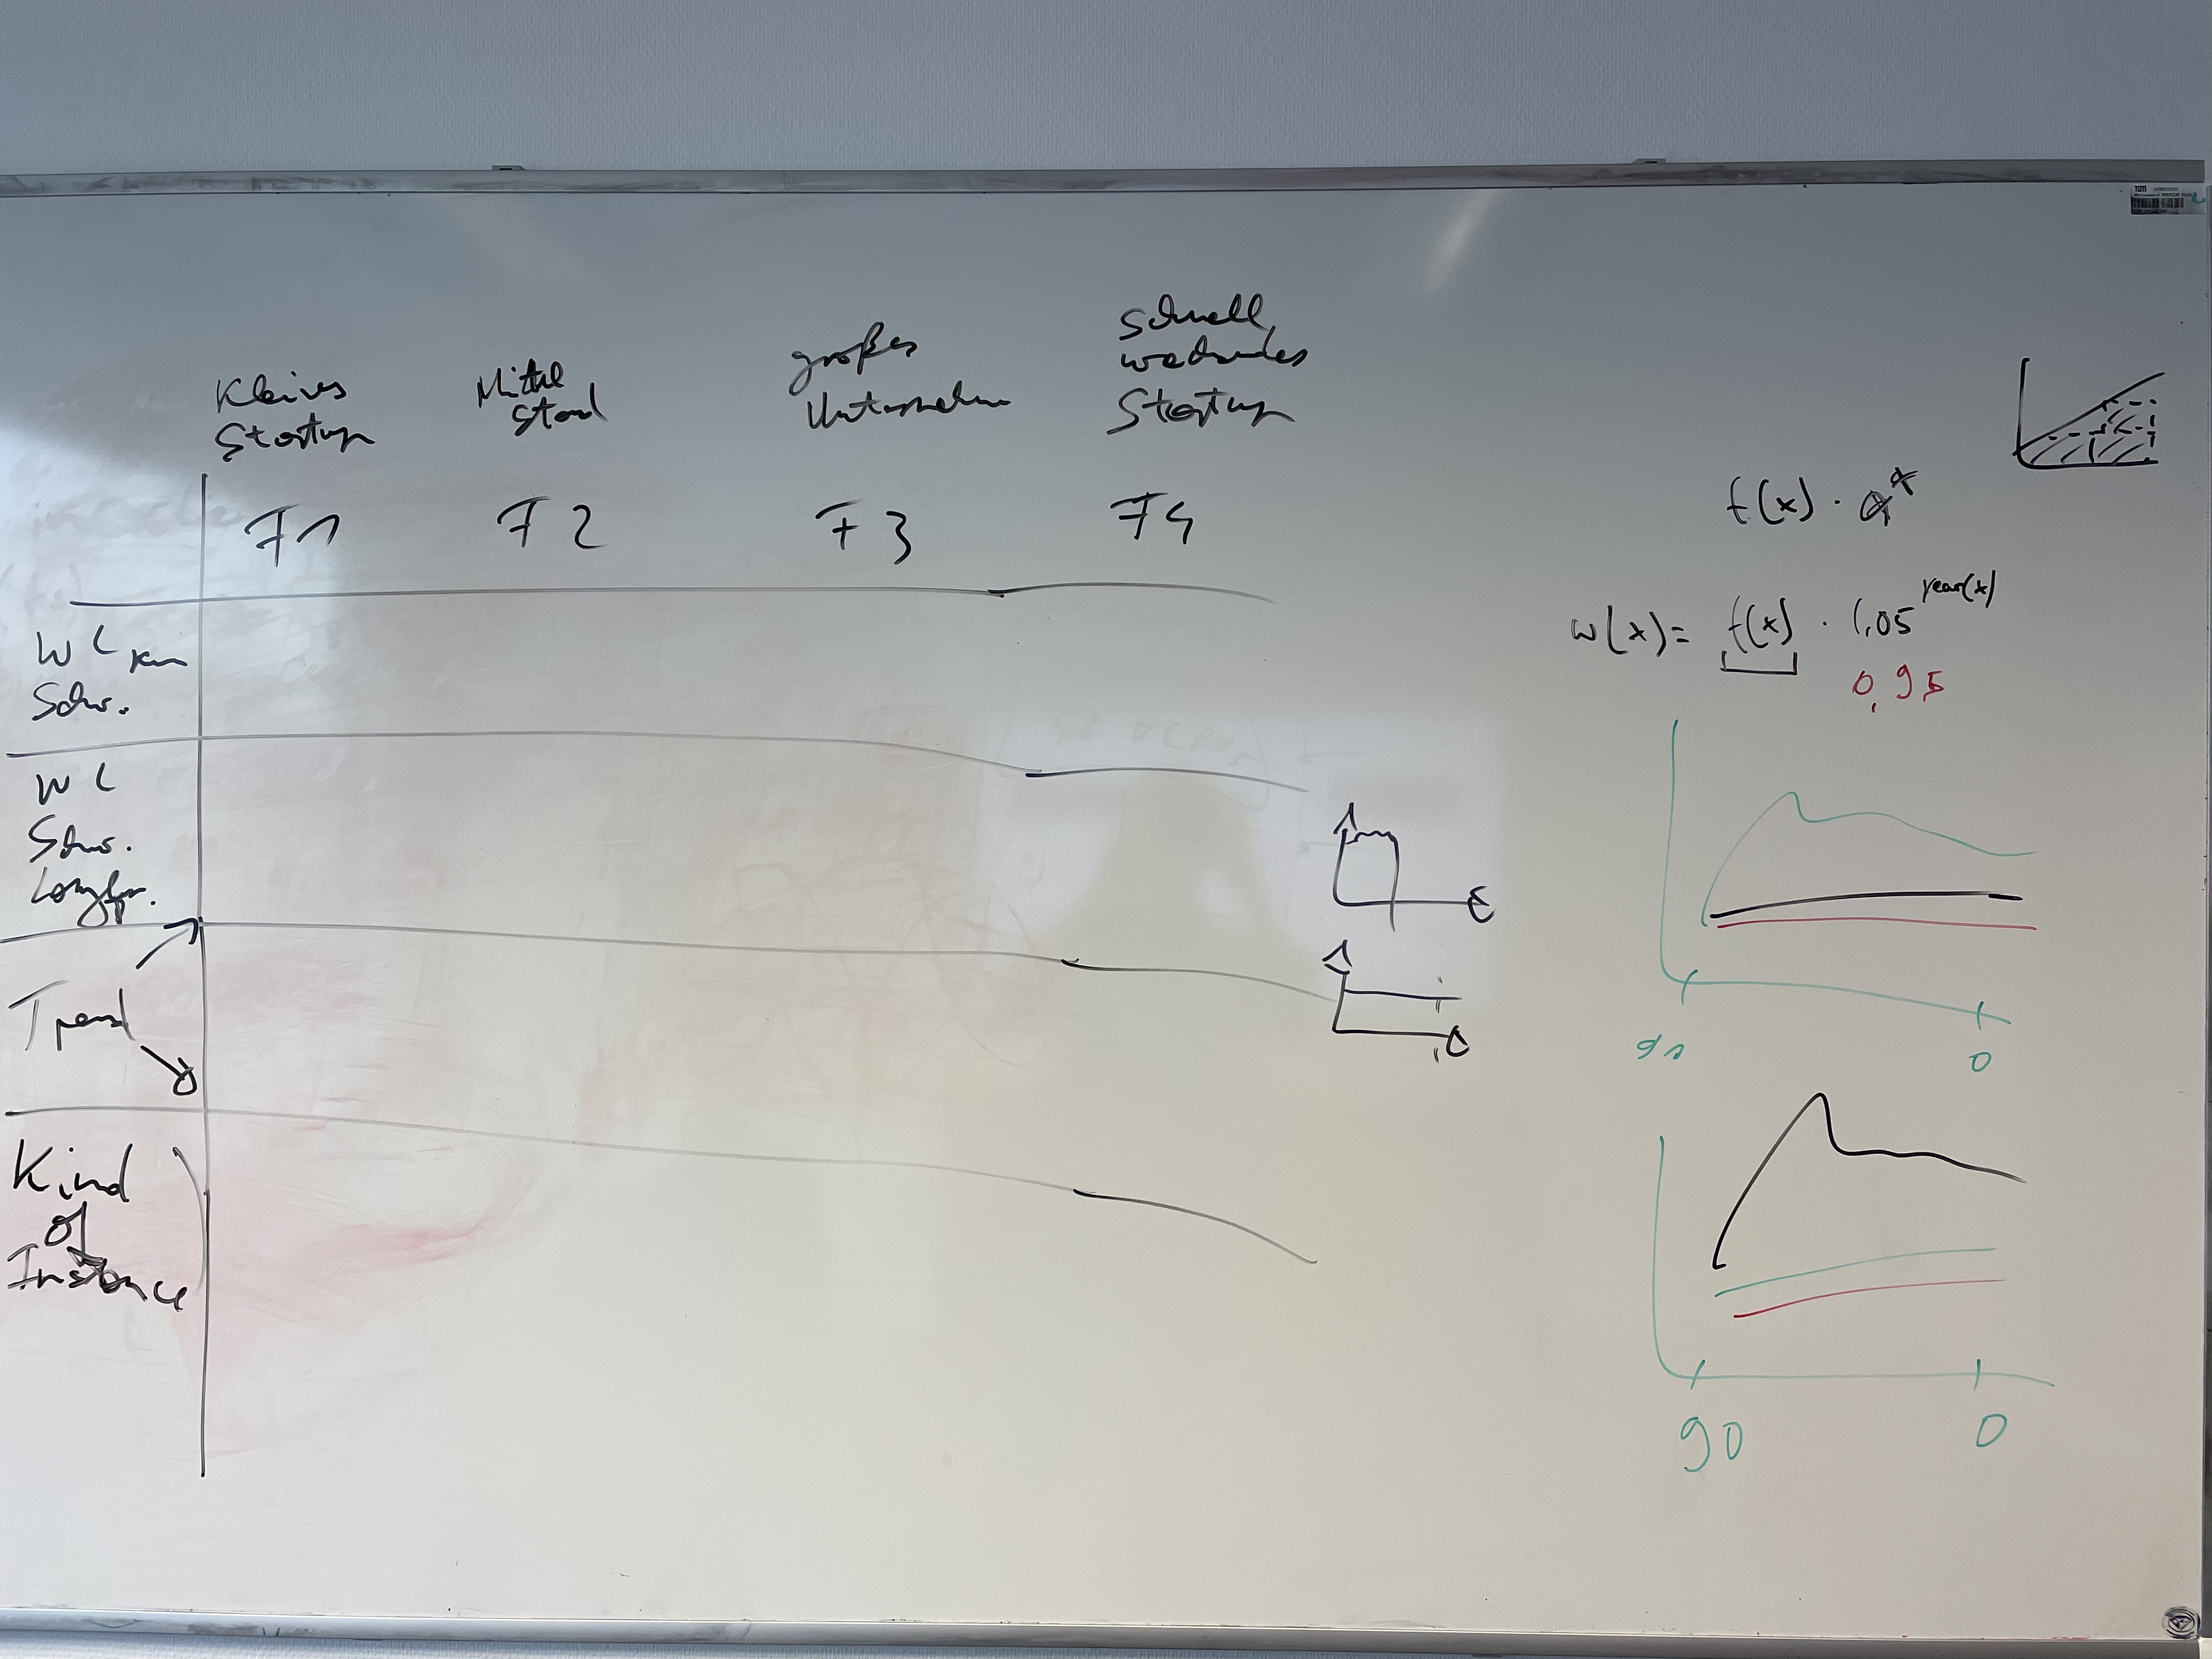 Kleines
Startup
Mittel
Stand
großes
Unternehmen
Schnell
wachsendes
Startup
F1
F2
F3
F4
WL
Schw.
WL
Schw.
Langfr.
Trend
Kind
of
Instance
f(x) ·
w(x) = f(x) · 1,05^year(x)
0,95
0
90
0
TUM